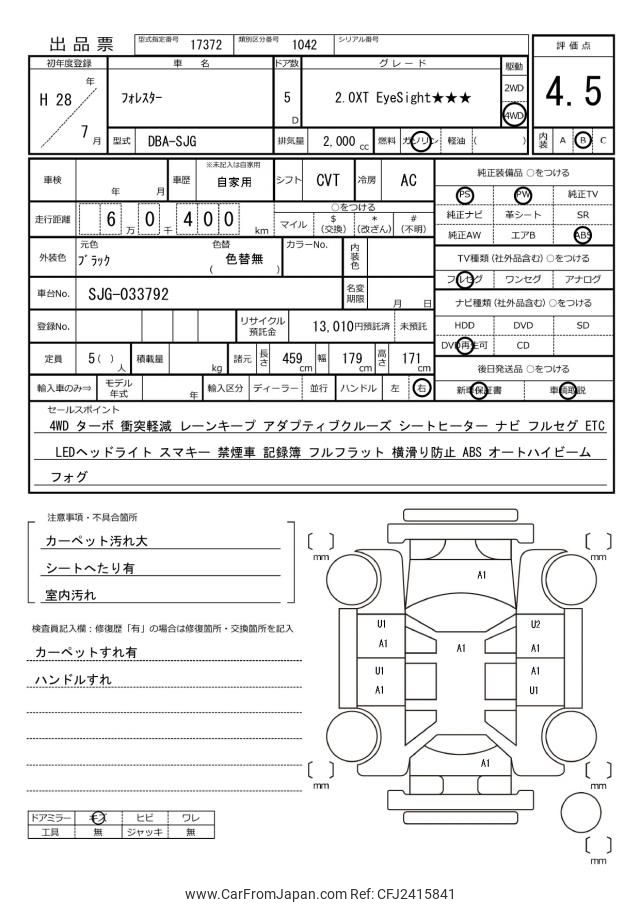 出品票 型式指定番号 17372 類別区分番号 1042 シリアル番号
評価点
4.5
内装 A B C
初年度登録 車名 ドア数 グレード 駆動
H 28 年 7 月 フォレスター 5 D 2.0XT EyeSight★★★ 2WD 4WD
型式 DBA-SJG 排気量 2,000 cc 燃料 ガソリン 軽油 ( )
車検 年 月 車歴 ※未記入は自家用 自家用 シフト CVT 冷房 AC
走行距離 6 万 0 千 4 0 0 km ○をつける
マイル $ (交換) * (改ざん) # (不明)
外装色 元色 ブラック 色替 ( 色替無 ) カラーNo. 内装色
車台No. SJG-033792 名変期限 月 日
登録No. リサイクル預託金 13,010円預託済 未預託
定員 5( ) 人 積載量 kg 諸元 長さ 459 cm 幅 179 cm 高さ 171 cm
輸入車のみ⇒ モデル年式 年 輸入区分 ディーラー 並行 ハンドル 左 右
純正装備品 ○をつける
PS PW 純正TV
純正ナビ 革シート SR
純正AW エアB ABS
TV種類(社外品含む) ○をつける
フルセグ ワンセグ アナログ
ナビ種類(社外品含む) ○をつける
HDD DVD SD
DVD再生可 CD
後日発送品 ○をつける
新車保証書 車輌取説
セールスポイント
4WD ターボ 衝突軽減 レーンキープ アダプティブクルーズ シートヒーター ナビ フルセグ ETC
LEDヘッドライト スマキー 禁煙車 記録簿 フルフラット 横滑り防止 ABS オートハイビーム
フォグ
注意事項・不具合箇所
カーペット汚れ大
シートへたり有
室内汚れ
検査員記入欄:修復歴「有」の場合は修復箇所・交換箇所を記入
カーペットすれ有
ハンドルすれ
ドアミラー キズ ヒビ ワレ
工具 無 ジャッキ 無
[ ] mm
[ ] mm
A1
U1 U2
A1 A1 A1
U1 A1
A1 U1
A1
[ ] mm
[ ] mm
[ ] mm
www.CarFromJapan.com Ref: CFJ2415841